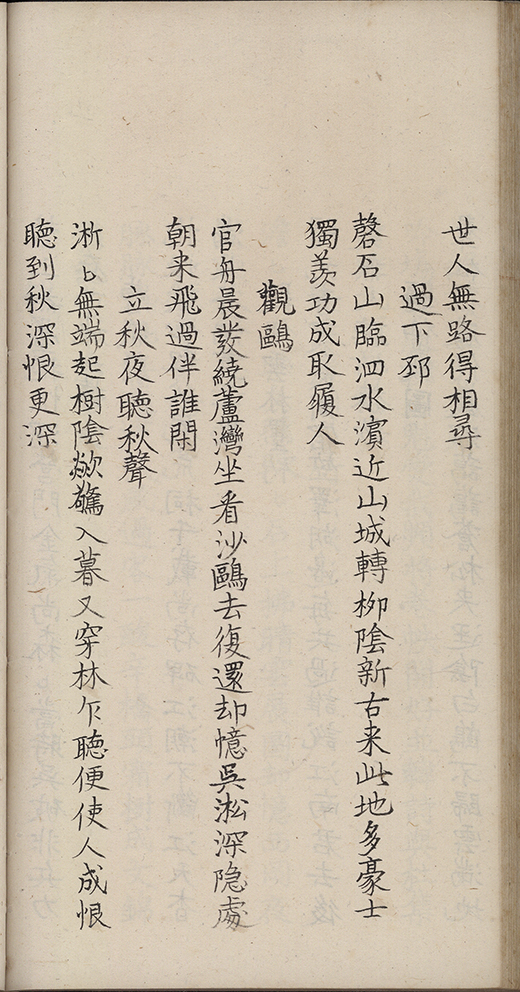 世人無路得相尋
過下邳
磬石山臨泗水濵近山城轉栁陰新古来此地多豪士
獨羡功成取履人
觀鷗
官舟晨發繞蘆灣坐看沙鷗去復還却憶吳淞深隐處
朝来飛過伴誰閑
立秋夜聽秋聲
淅〻無端起樹陰歘驚入暮又穿林乍聽便使人成恨
聽到秋深恨更深